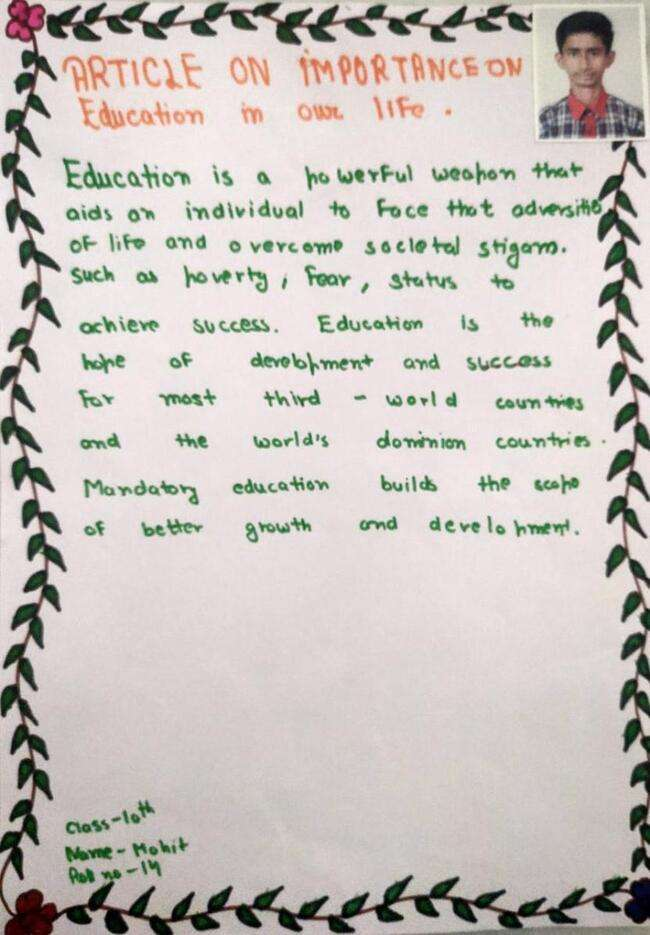 ARTICLE ON IMPORTANCE ON
Education in our life.
Education is a powerful weapon that
aids an individual to face that adversitie
of life and overcome societal stigam.
Such as poverty, fear, status to
achieve success. Education is the
hope of development and success
for most third-world countries
and the world's dominion countries.
Mandatory education builds the scope
of better growth and development.
Class-10th
Name-Mohit
Roll no-14